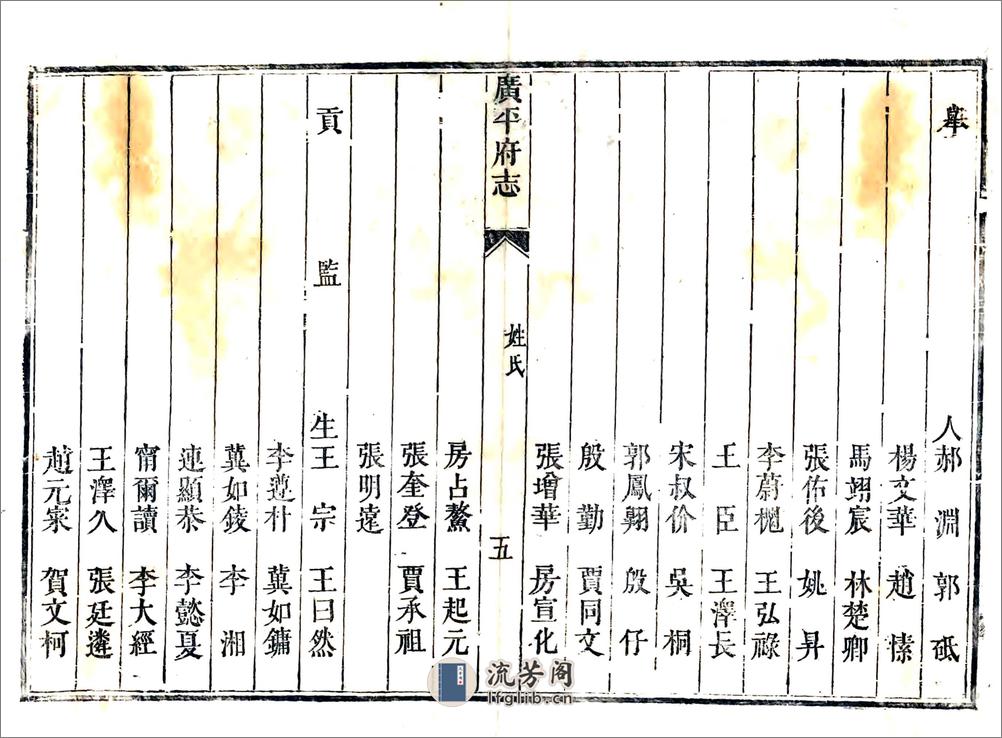 舉人郝淵 郭砥
楊文華 趙愫
馬翊宸 林楚卿
張佑後 姚昇
李蔚櫆 王弘祿
王臣 王澤長
宋叔价 吳桐
郭鳳翱 殷仔
殷勤 賈同文
張增華 房宣化
廣平府志 姓氏 五
房占鰲 王起元
張奎登 賈承祖
張明遠
貢監生王宗 王曰然
李遵朴 冀如鏞
冀如錂 李湘
連顯恭 李懿夏
甯爾讀 李大經
王澤久 張廷遴
趙元寀 賀文柯
流芳阁
lfglib.cn